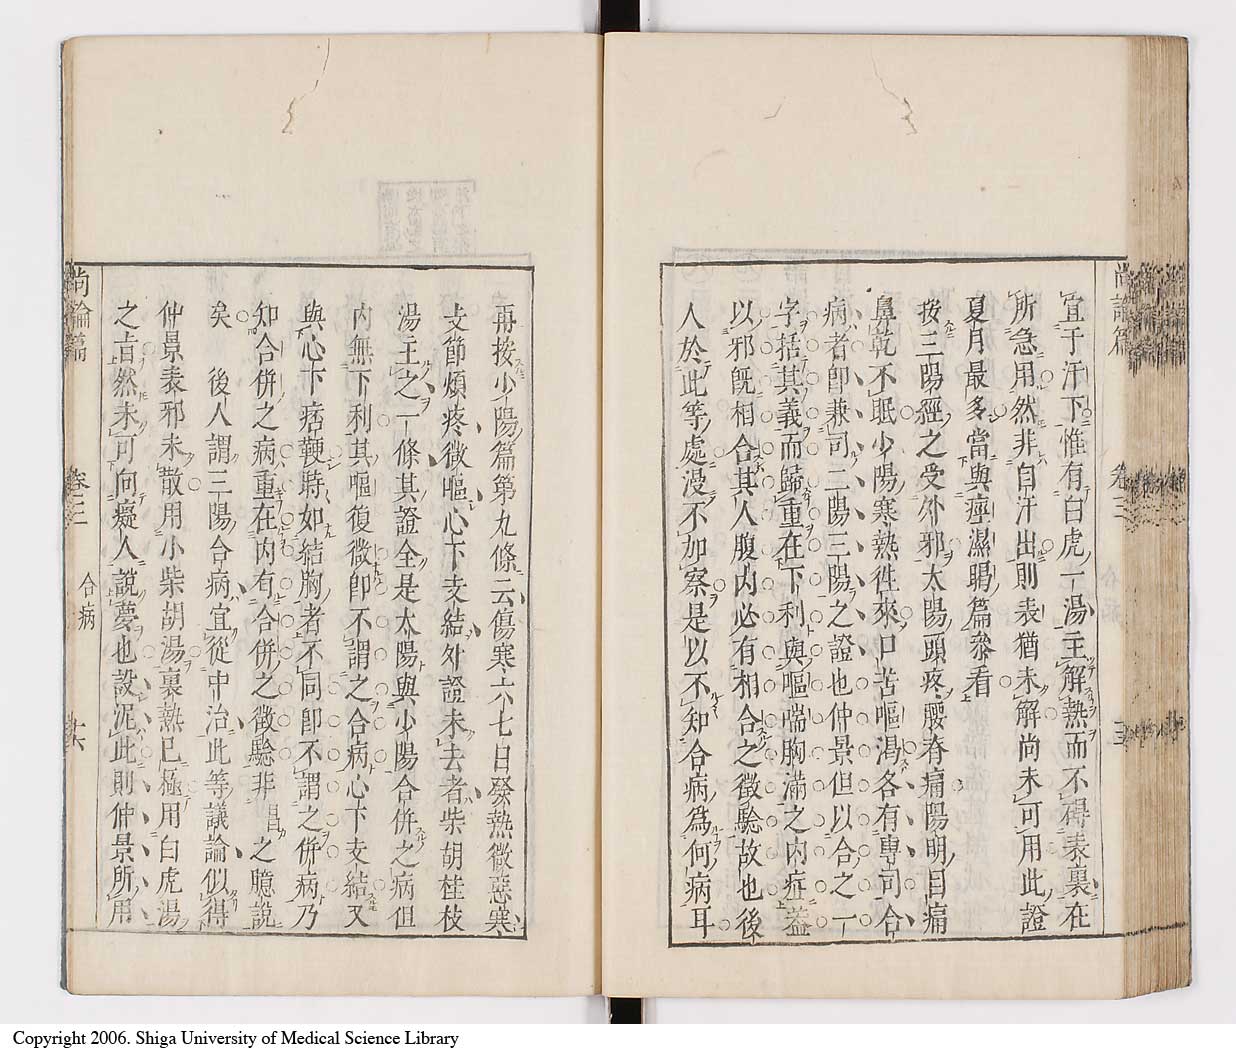 宜于汗下惟有白虎一湯主解熱而不碍表裏在
所急用然非自汗出則表猶未解尚未可用此證
夏月最多當與痙濕暍篇參看
按三陽經之受外邪太陽頭疼腰脊痛陽明目痛
鼻乾不眠少陽寒熱徃來口苦嘔渴各有專司合
病者卽兼司二陽三陽之證也仲景但以合之一
字括其義而歸重在下利與嘔喘胸滿之内症葢
以邪旣相合其人腹内必有相合之徵騐故也後
人於此等處漫不加察是以不知合病爲何病耳
再按少陽篇第九條云傷寒六七日發熱微惡寒
支節煩疼微嘔心下支結外證未去者柴胡桂枝
湯主之一條其證全是太陽與少陽合併之病但
内無下利其嘔復微卽不謂之合病心下支結又
與心下痞鞕時如結胸者不同卽不謂之併病乃
知合併之病重在内有合併之徵騐非昌之臆説
矣　後人謂三陽合病宜從中治此等議論似得
仲景表邪未散用小柴胡湯裏熱已極用白虎湯
之旨然未可向癡人說夢也設泥此則仲景所用
尚論篇
卷三
合病
十六
Copyright 2006. Shiga University of Medical Science Library